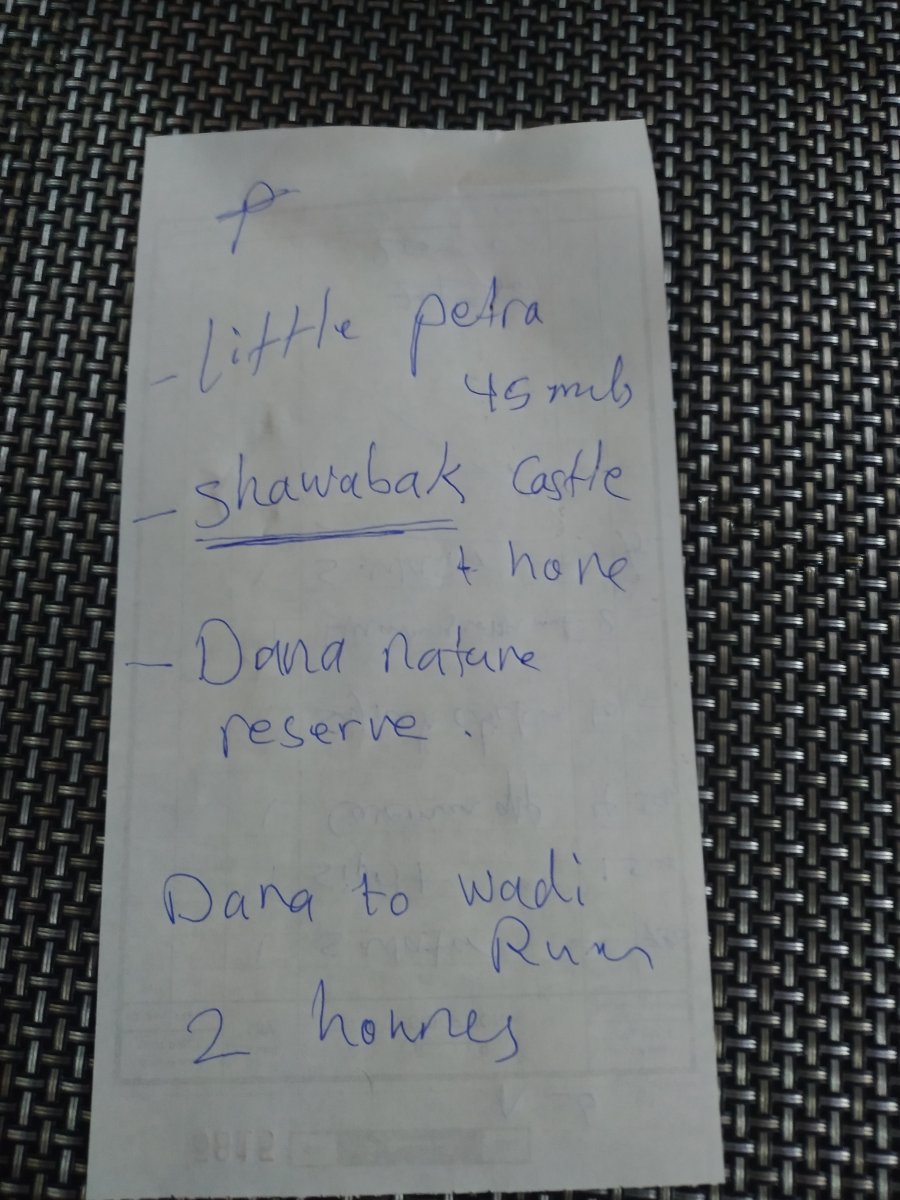 - little petra
45 min
- Shawabak Castle
+ hore
- Dana nature
reserve.
Dana to wadi
Rum
2 hournes